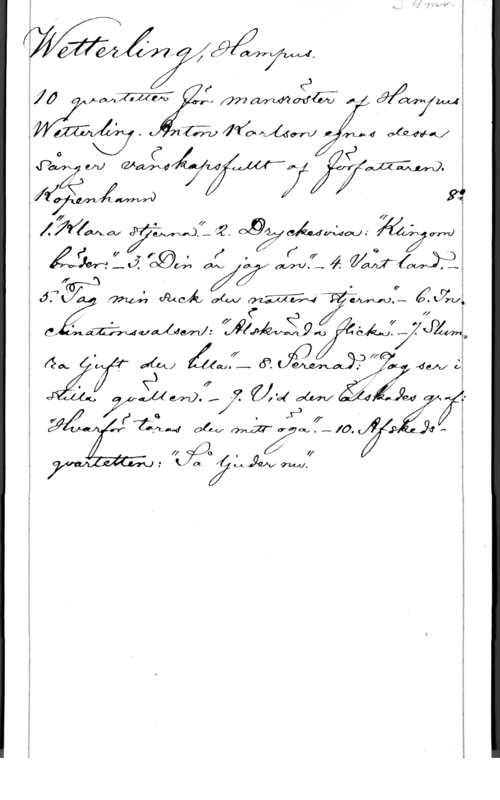 Wetterling, Hampus.
10 qvartetter för mansröster af Hampus
Wetterling. Anton Karlson egnas dessa
Sånger vänskapsfullt af författaren.
Köpenhamn 8º
1. "Klara stjerna" - 2. Dryckesvisa: "Klingom
bröder:" - 3. "Din är jag än" - 4. Vårt land. -
5. "Tag min suck du nattens stjerna" - 6. In-
clinationsvalsen: "Älskvärda flicka" - 7. "Slum-
ra ljuft du lilla" - 8. Serenad: "Jag ser i
stilla qvällen" - 9. Vid den älskades graf:
"Hvarför tåras du mitt öga" - 10. Afskeds-
qvartetten: "Så ljuder nu".